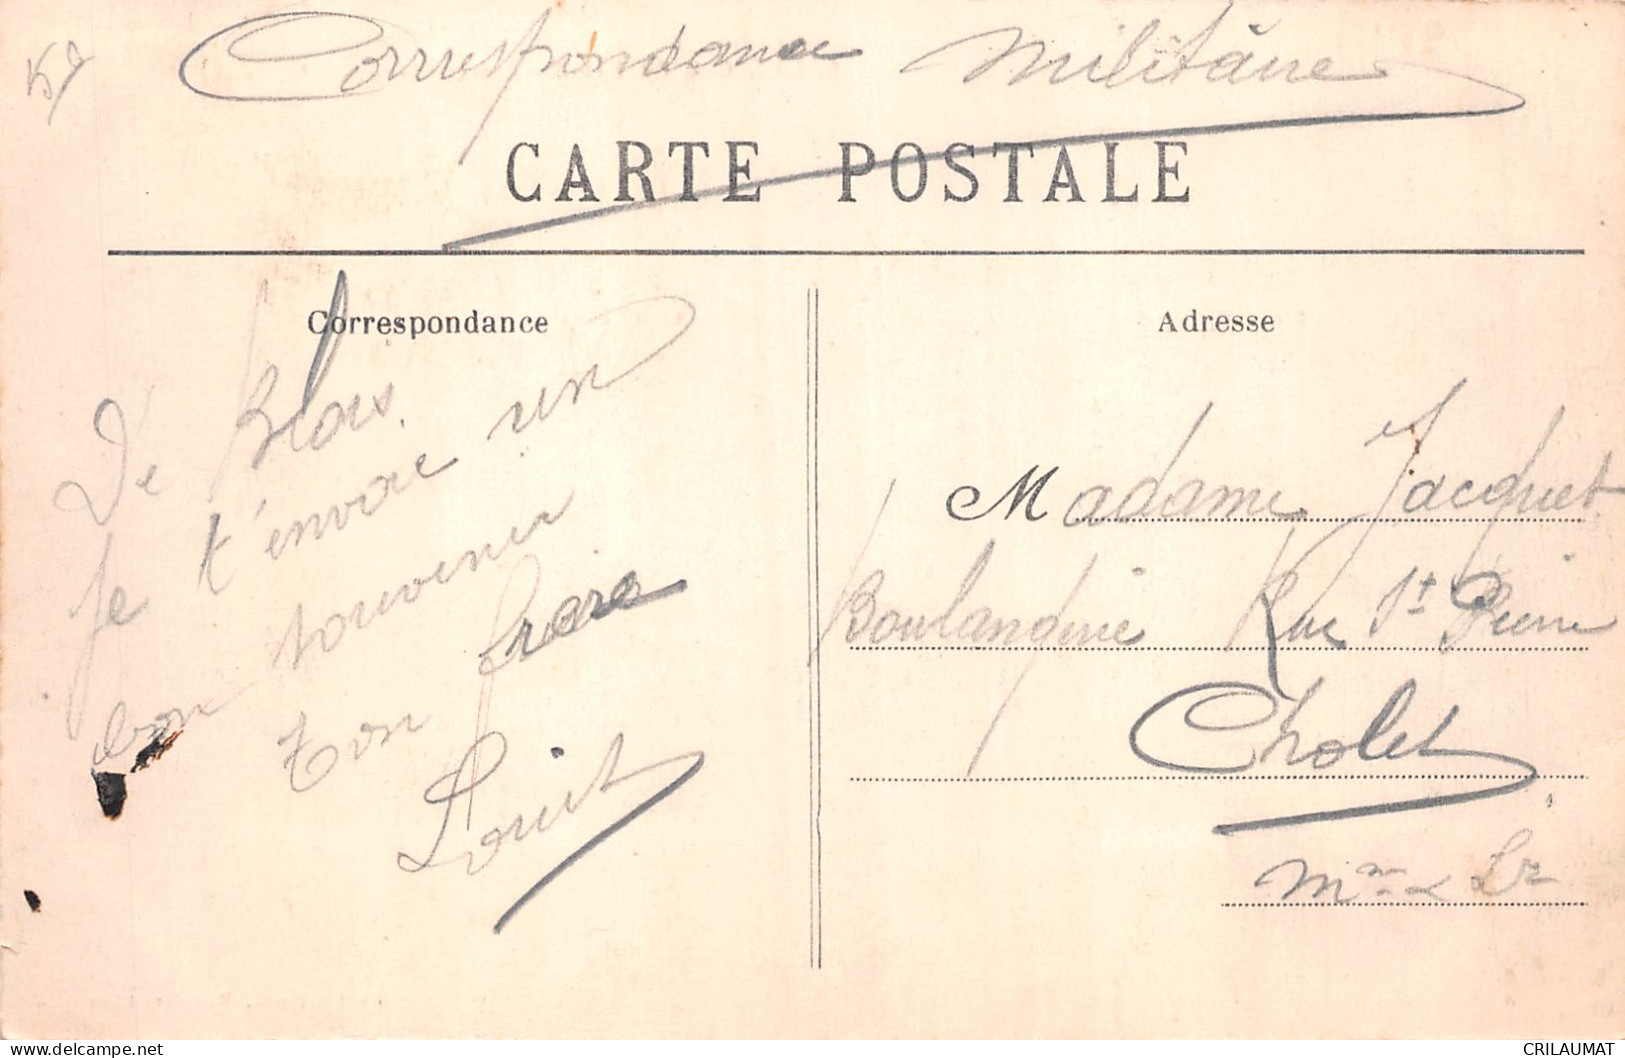 Correspondance Militaire
CARTE POSTALE
Correspondance
De Blois
je t'envoie un
bon souvenir
ton frère
Louis
Adresse
Madame Jacquet
Boulangerie Rue St Pierre
Cholet
Mne & Lre
CRILAUMAT